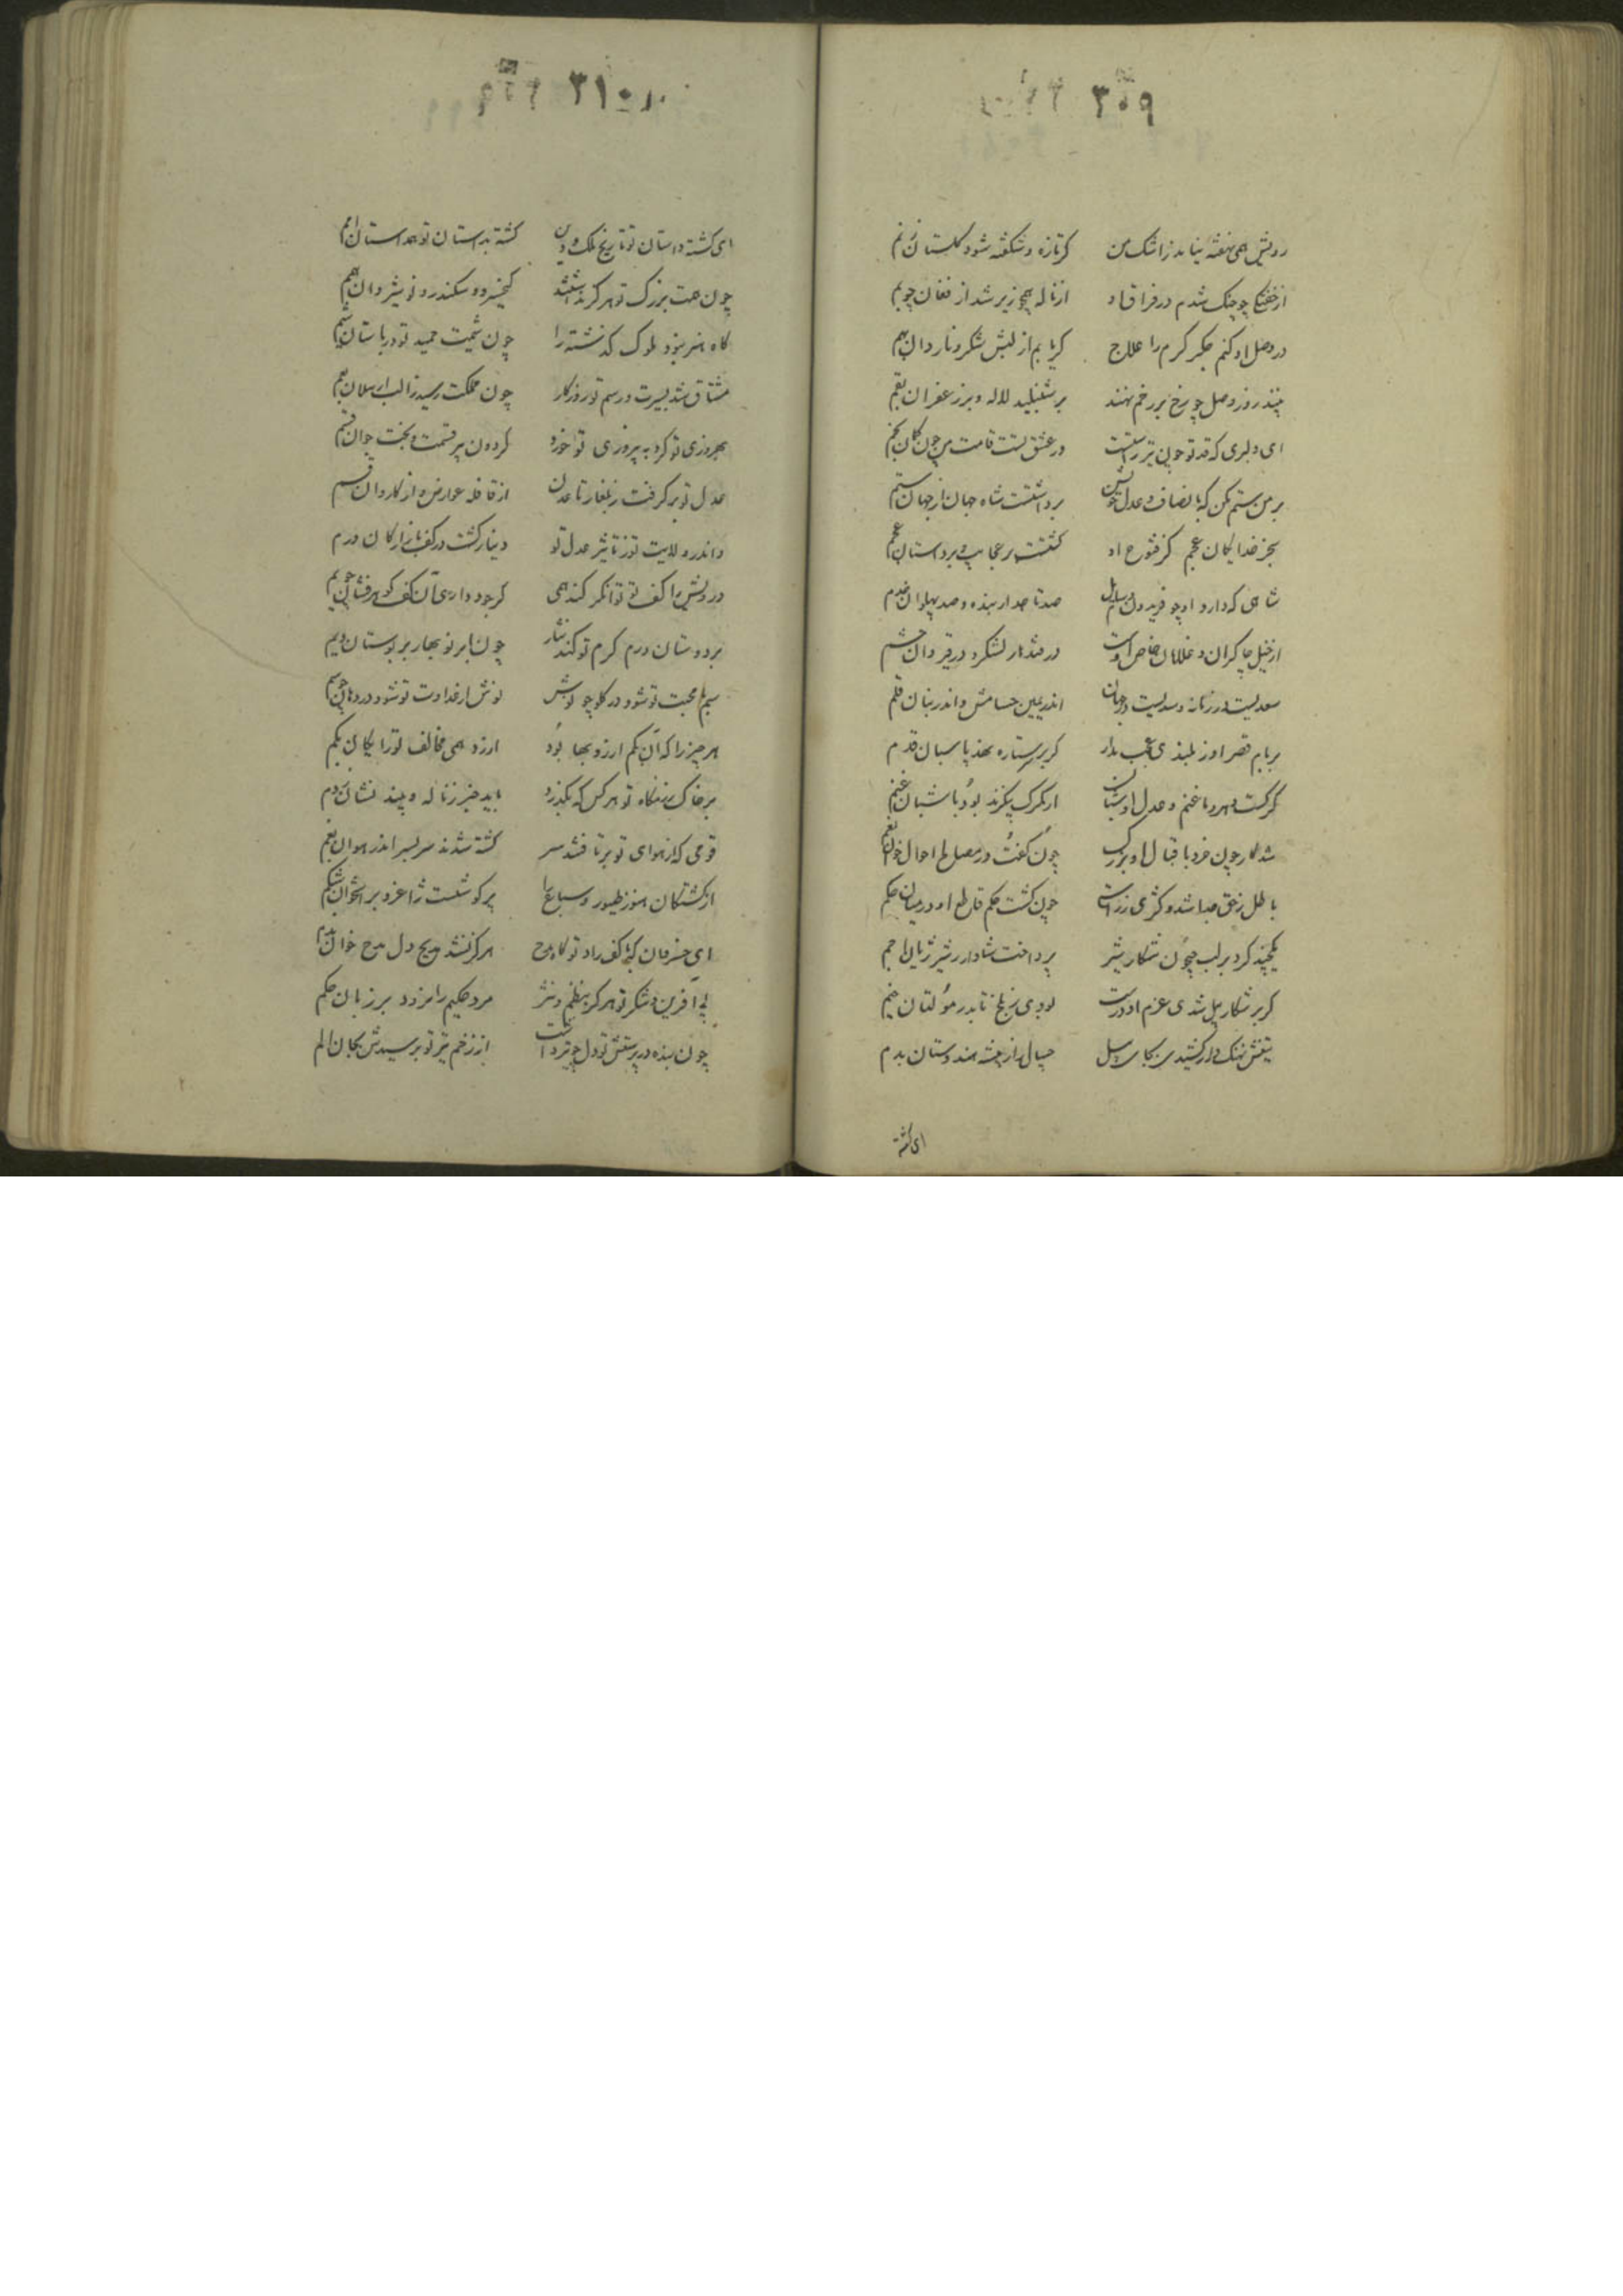 ۳۰۹
رویش همی نهفته نیابد ز اشک من کر تازه و شکفته شود کلستان ز نم
از خفتکی چو چنک شدم در فراق او از ناله همچو زیر شد از فغان چو بم
در وصل او کنم جکر کرم را علاج کر یابم از لبش شکر و ناردان بهم
چند روز وصل چو رخ بر رخم نهند بر شنبلید لاله و بر زعفران بقم
ای دلبری که قد تو چون تیر راستست در عشق تست قامت من چون کمان بخم
بر من ستم مکن که بانصاف و عدل خویش برداشتست شاه جهان از جهان ستم
بجز خدایکان عجم کز فتوح او کشتست پر عجایب و پر داستان عجم
شاهی که دارد او چو فریدون صد تاجدار بنده و صد پهلوان خدم
از خیل چاکران و غلامان خاص اوست در قندهار لشکر و در قیروان حشم
سعدیست در زمانه و سدیست در جهان اندر یمین حسامش و اندر بنان قلم
بر بام قصر او ز بلندی عجب مدار کر بر ستاره نهد پاسبان قدم
کرکست دهر و ما غنم و عدل او شبان از کرک بی کزند بود با شبان غنم
شد کار چون خرد باقبال او بزرک چون کفت در مصالح احوال خوان نعم
باطل ز حق جدا شد و کژی ز راستی چون کشت حکم قاطع او در میان حکم
یکچند کرد بر لب جیحون شکار شیر پرداخت شادوار ز شیر ژیان اجم
کر بر شکار پیل شدی عزم او درست بودی ز بلخ تا بدر مولتان خیم
تیغش نهنک وار کشیدی بجای سیل جیپال را ز بیشه هندوستان بدم
ای کشته
۳۱۰
ای کشته داستان تو تاریخ ملک و دین کشته بداستان تو همداستان امم
چون همت بزرک تو هرکز نداشتند کیخسرو و سکندر و نوشیروان همم
کاه هنر نبود ملوک کذشته را چون شیمت حمید تو در باستان شیم
مشتاق شد بسیرت و رسم تو روزکار چون مملکت رسید ز الب ارسلان بعم
بهروزی تو کرد به پیروزی تو اخورد کردون پیر قسمت و بخت جوان قسم
عدل تو بر کرفت ز بلغار تا عدن از قافله عوارض و از کاروان قسم
واندر ولایت تو ز تاثیر عدل تو دینار کشت در کف بازارکان درم
درویش را کف تو توانکر کند همی کر جود داری آن کف کوهرفشان چو یم
بر دوستان درم کرم تو کند نثار چون ابر نوبهار بر بوستان دیم
سم با محبت تو شود در کلو چو نوش نوش از عداوت تو شود در دهان چو سم
هر چیز را که آن بکم ارزد بها بود ارزد همی مخالف تو رایکان بکم
بر خاک رزمکاه تو هر کس که بکذرد یابد خبر ز ناله و بیند نشان ز دم
قومی که از هوای تو بر تافتند سر کشته شدند سر بسر اندر هوان بغم
از کشتکان هنوز طیور و سباع را پر کوشتست ژاغر و پر استخوان شکم
ای خسرو مان که کف راد تو کاه مدح هرکز نشد هیچ دل مدح خوان
بی آفرین و شکر تو هرکز بنظم و نثر مرد حکیم را نرود بر زبان حکم
چون بنده در پرستش تو دل چو تیر داشت از زخم تیر تو نرسیدش بجان الم